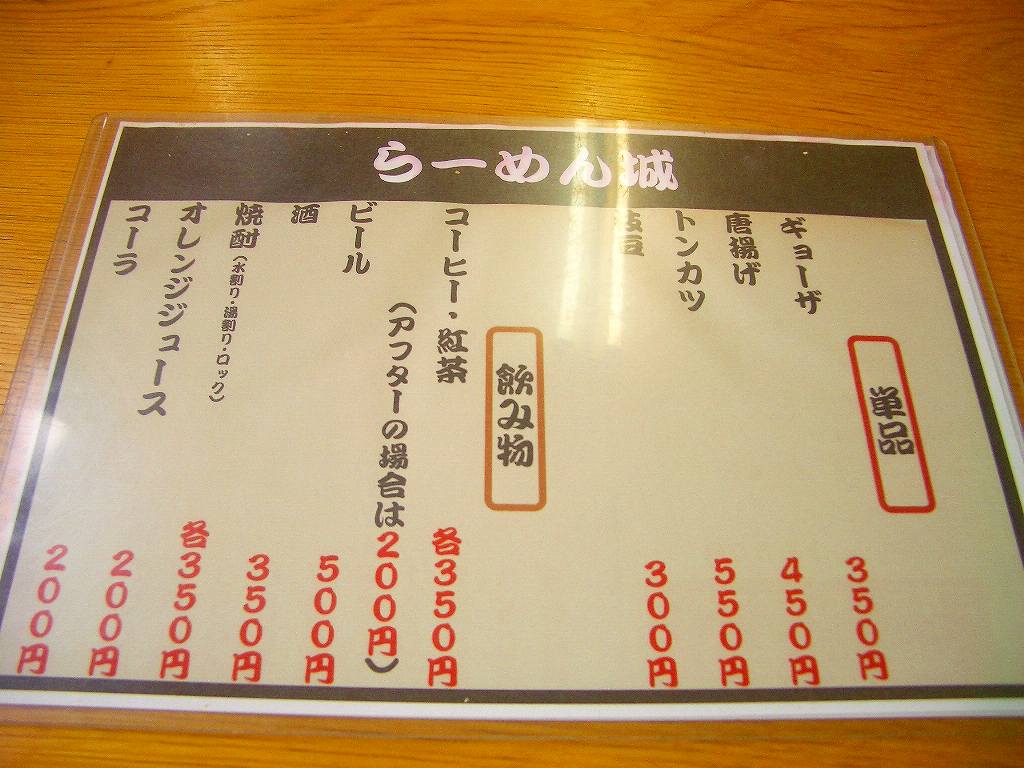 らーめん城
単品
ギョーザ 350円
唐揚げ 450円
トンカツ 550円
枝豆 300円
飲み物
コーヒー・紅茶 各350円
(アフターの場合は200円)
ビール 500円
酒 350円
焼酎(水割り・湯割り・ロック) 各350円
オレンジジュース 200円
コーラ 200円